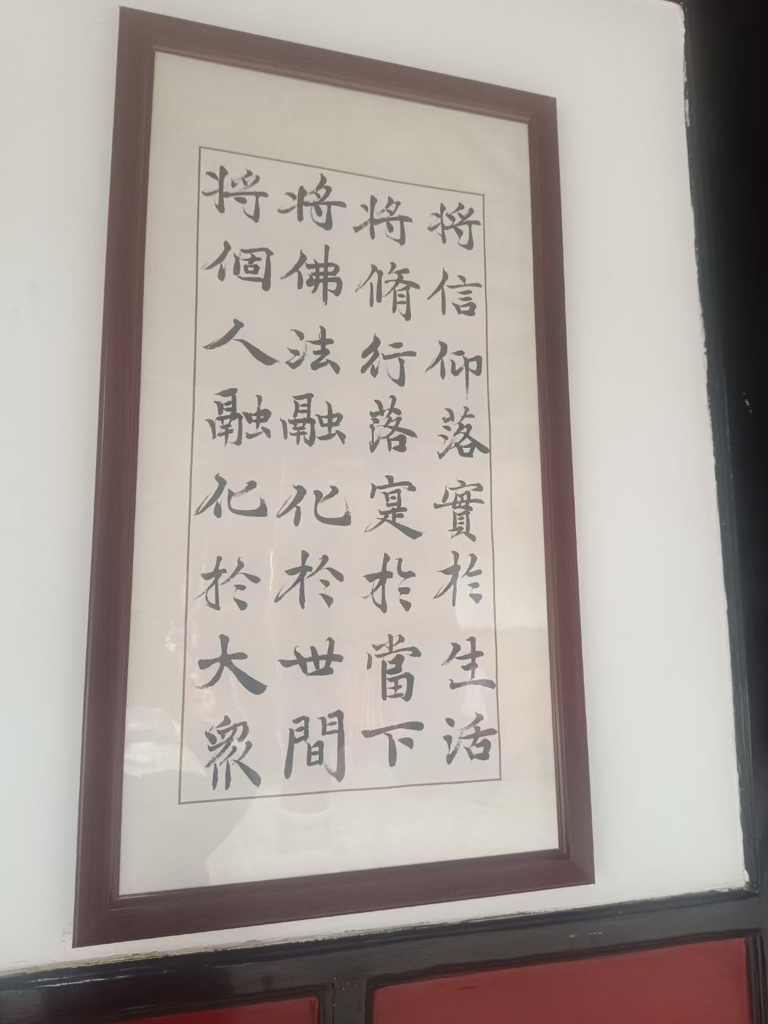 将信仰落實於生活
将脩行落寔於當下
将佛法融化於世間
将個人融化於大眾